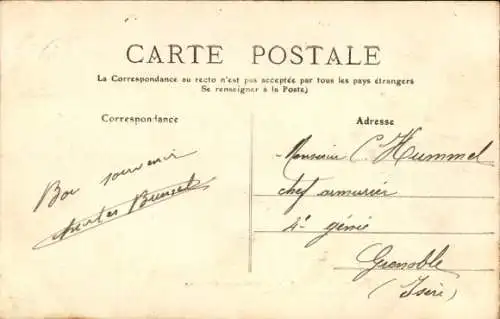 CARTE POSTALE
La Correspondance au recto n'est pas acceptée par tous les pays étrangers
(Se renseigner à la Poste)
Correspondance
Adresse
Bon souvenir
Monsieur C. Hummel
chef armurier
4e génie
Grenoble
(Isère)